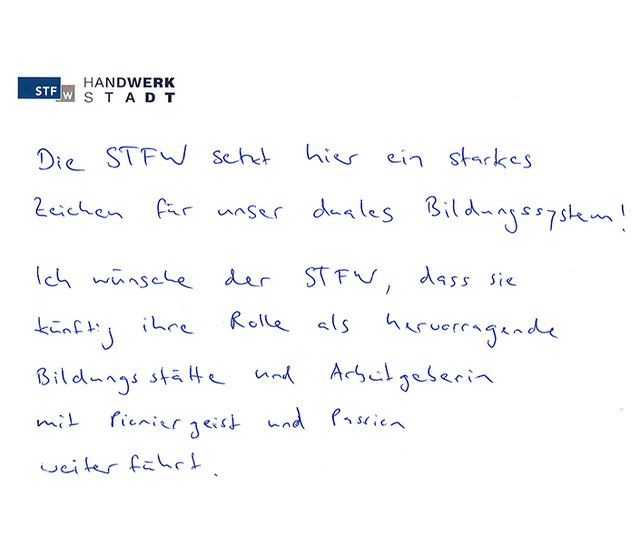 STFW HANDWERK
STADT
Die STFW setzt hier ein starkes
Zeichen für unser duales Bildungssystem!
Ich wünsche der STFW, dass sie
künftig ihre Rolle als hervorragende
Bildungsstätte und Arbeitgeberin
mit Pioniergeist und Passion
weiterführt.